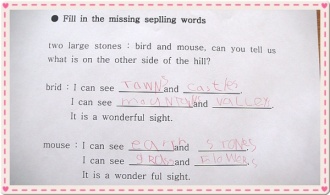 ● Fill in the missing seplling words
two large stones : bird and mouse, can you tell us
what is on the other side of the hill?
brid : I can see TOWNS and castles.
I can see mountains and valley.
It is a wonderful sight.
mouse : I can see earth and STONES
I can see grass and Flowers.
It is a wonder ful sight.